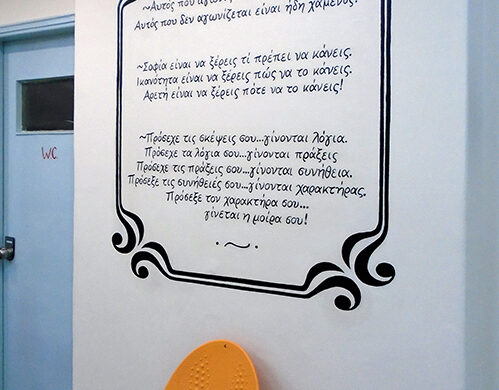 ~Αυτός που
Αυτός που δεν αγωνίζεται είναι ήδη χαμένος!
~Σοφία είναι να ξέρεις τί πρέπει να κάνεις.
Ικανότητα είναι να ξέρεις πώς να το κάνεις.
Αρετή είναι να ξέρεις πότε να το κάνεις!
~Πρόσεχε τις σκέψεις σου...γίνονται λόγια.
Πρόσεχε τα λόγια σου...γίνονται πράξεις
Πρόσεχε τις πράξεις σου...γίνονται συνήθεια.
Πρόσεξε τις συνήθειές σου...γίνονται χαρακτήρας.
Πρόσεξε τον χαρακτήρα σου...
γίνεται η μοίρα σου!
W.C.